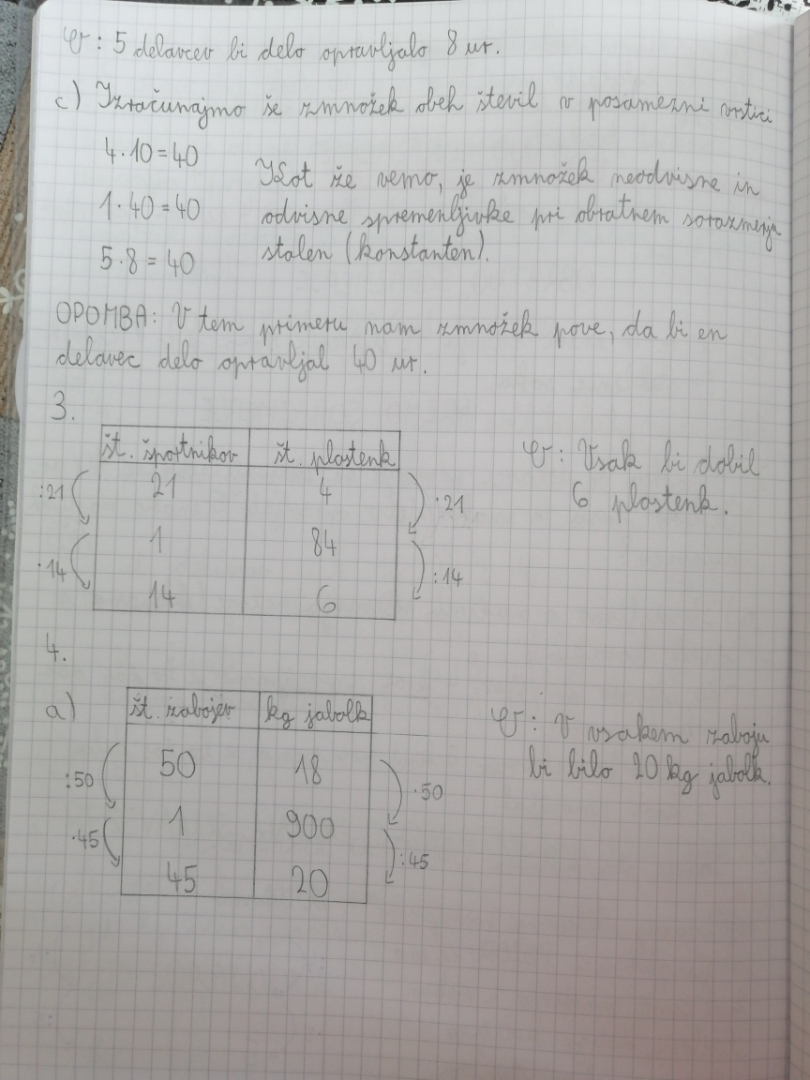 O: 5 delavcev bi delo opravljalo 8 ur.
c) Izračunajmo še zmnožek obeh števil v posamezni vrstici
4·10=40
1·40=40
5·8=40
Kot že vemo, je zmnožek neodvisne in
odvisne spremenljivke pri obratnem sorazmerju
stalen (konstanten).
OPOMBA: V tem primeru nam zmnožek pove, da bi en
delavec delo opravljal 40 ur.
3.
št. športnikov št. plastenk
:21 21 4 ·21
1 84
·14 14 6 :14
O: Vsak bi dobil
6 plastenk.
4.
a) št. zabojev kg jabolk
:50 50 18 ·50
1 900
·45 45 20 :45
O: V vsakem zaboju
bi bilo 20 kg jabolk.